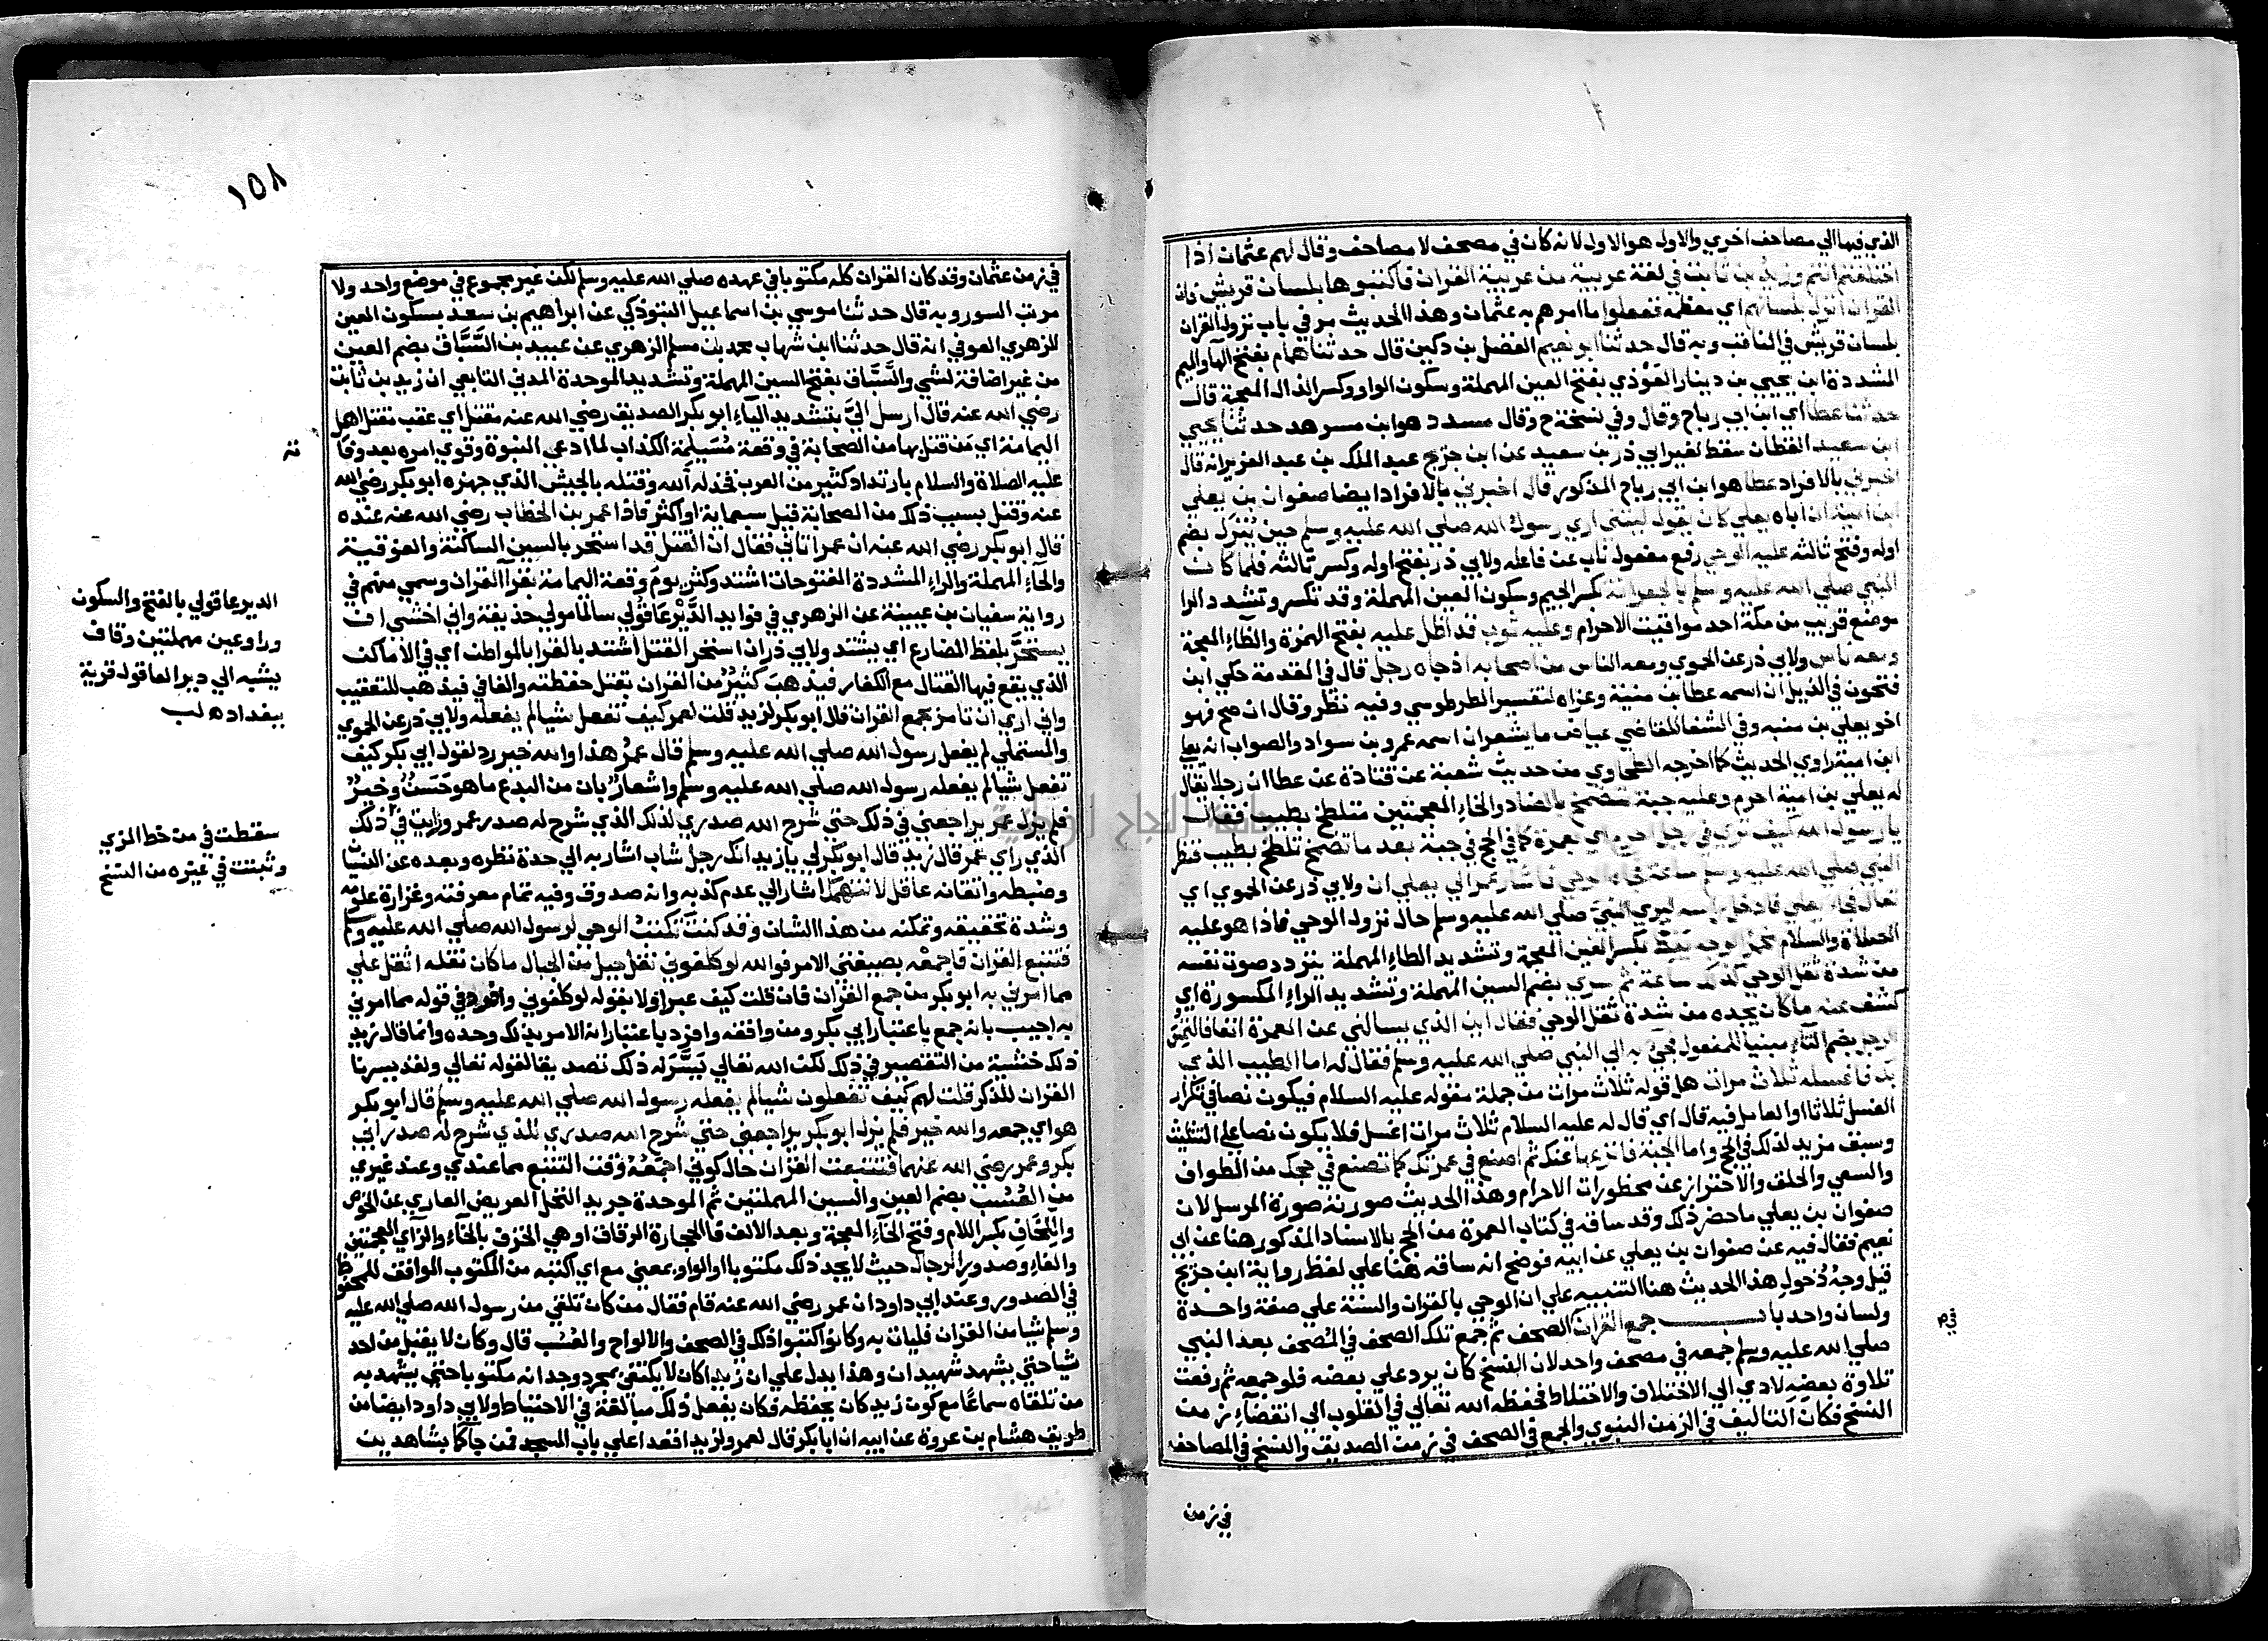 الذي فيها الي مصاحف اخري والاول هو الاول لانه كان في مصحف لا مصاحف وقال لهم عثمان اذا
اختلفتم انتم وزيد بن ثابت في لغة عربية من عربية القران فاكتبوها بلسان قريش فان
القران انزل بلسانهم اي معظمه ففعلوا ما امرهم به عثمان وهذا الحديث مر في باب نزول القران
بلسان قريش في المناقب وبه قال حدثنا ابو نعيم الفضل بن دكين قال حدثنا همام بفتح الهاء والميم
المشددة ابن يحيي بن دينار العَوْذي بفتح العين المهملة وسكون الواو وكسر الذال المعجمة قال
حدثنا عطا اي ابن ابي رباح وقال وفي نسخة ح وقال مسدد هو ابن مسرهد حدثنا يحيي
ابن سعيد القطان سقط لغير ابي ذر بن سعيد عن ابن جريج عبد الملك بن عبد العزيز انه قال
اخبرني بالافراد عطا هو ابن ابي رباح المذكور قال اخبرني بالافراد ايضا صفوان بن يعلي
ابن امية ان اباه يعلي كان يقول ليتني اري رسول الله صلي الله عليه وسلم حين يُنزل بضم
اوله وفتح ثالثه عليه الوحي رفع مفعول ناب عن فاعله ولابي ذر بفتح اوله وكسر ثالثه فلما كان
النبي صلي الله عليه وسلم بالجعرانة بكسر الجيم وسكون العين المهملة وقد تكسر وتشدد الرا
موضع قريب من مكة احد مواقيت الاحرام وعليه ثوب قد اظل عليه بفتح الهمزة والظاء المعجمة
ومعه ناس ولابي ذر عن الحموي ومعه الناس من اصحابه اذ جاه رجل قال في المقدمة حكي ابن
فتحون في الذيل ان اسمه عطا بن منية وعزاه لتفسير الطرطوسي وفيه نظر وقال ان صح فهو
اخو يعلي بن منيه وفي الشفا للقاضي عياض ما يشعر ان اسمه عمرو بن سواد والصواب انه يعلي
ابن امية راوي الحديث كما اخرجه الطحاوي من حديث شعبة عن قتادة عن عطا ان رجلا يقال
له يعلي بن امية احرم وعليه جبة متضمخ بالضاد والخاء المعجمتين متلطخ بطيب فقال
يا رسول الله كيف تري في رجل احرم اي بعمرة كما في الحج في جبة بعد ما تضمخ تلطخ بطيب فنظر
النبي صلي الله عليه وسلم ساعة فجاه الوحي فاشار عمر الي يعلي ان ولابي ذر عن الحموي اي
تعال فجاء يعلي فادخل راسه ليري النبي صلي الله عليه وسلم حال نزول الوحي فاذا هو عليه
الصلاة والسلام محمر الوجه يَغِطُّ بكسر الغين المعجمة وتشديد الطاء المهملة يتردد صوت نفسه
من شدة ثقل الوحي كذلك ساعة ثم سري بضم السين المهملة وتشديد الراء المكسورة اي
كشف عنه ما كان يجده من شدة ثقل الوحي فقال اين الذي يسالني عن العمرة انفا فالتُمِسَ
الرجل بضم التاء مبنيا للمفعول فجيء به الي النبي صلي الله عليه وسلم فقال له اما الطيب الذي
بك فاغسله ثلاث مرات هل قوله ثلاث مرات من جملة مقوله عليه السلام فيكون نصا في تكرار
الغسل ثلاثا او العامل فيه قال اي قال له عليه السلام ثلاث مرات اغسل فلا يكون نصا علي التثليث
وسبق مزيد لذلك في الحج واما الجبة فانزعها عنك ثم اصنع في عمرتك كما تصنع في حجك من الطواف
والسعي والحلق والاحتراز عن محظورات الاحرام وهذا الحديث صورته صورة المرسل لان
صفوان بن يعلي ما حضر ذلك وقد ساقه في كتاب العمرة من الحج بالاسناد المذكور هنا عن ابي
نعيم فقال فيه عن صفوان بن يعلي عن ابيه فوضح انه ساقه هنا علي لفظ رواية ابن جريج
قيل وجهُ دُخولِ هذا الحديث هنا التنبيه علي ان الوحي بالقران والسنة علي صفة واحدة
ولسان واحد باب جمع القران الصحف ثم جمع تلك الصحف في المُصحف بعد النبي
صلي الله عليه وسلم جمعه في مصحف واحد لان النسخ كان يرد علي بعضه فلو جمعه ثم رفعت
تلاوة بعضه لادي الي الاختلاف والاختلاط فحفظه الله تعالي في القلوب الي انقضاء زمن
النسخ فكان التاليف في الزمن النبوي والجمع في الصحف في زمن الصديق والنسخ في المصاحف
في زمن
في م
١٥٨
في زمن عثمان وقد كان القران كله مكتوبا في عهده صلي الله عليه وسلم لكن غير مجموع في موضع واحد ولا
مرتب السور وبه قال حدثنا موسي بن اسماعيل التبوذكي عن ابراهيم بن سعد بسكون العين
الزهري العوفي انه قال حدثنا ابن شهاب محمد بن مسلم الزهري عن عبيد بن السَّبَّاق بضم العين
من غير اضافة لشي والسَّبَّاق بفتح السين المهملة وتشديد الموحدة المدني التابعي ان زيد بن ثابت
رضي الله عنه قال ارسل اليَّ بتشديد الياء ابو بكر الصديق رضي الله عنه مقتل اي عقب مقتل اهل
اليمامة اي من قتل بها من الصحابة في وقعة مُسَيلمة الكذاب لما ادعي النبوة وقوي امره بعد وفا
ته
عليه الصلاة والسلام بارتداد كثير من العرب فخذله الله وقتله بالجيش الذي جهزه ابو بكر رضي الله
عنه وقتل بسبب ذلك من الصحابة قيل سبعماية او اكثر فاذا عمر بن الخطاب رضي الله عنه عنده
قال ابو بكر رضي الله عنه ان عمر اتاني فقال ان القتل قد استحر بالسين الساكنة والفوقية
والحاء المهملة والراء المشددة المفتوحات اشتد وكثر يوم وقعة اليمامة بقراء القران وسمي منهم في
رواية سفيان بن عيينة عن الزهري في فوايد الدَّيْرعَاقُولي سالما مولي حذيفة واني اخشي ان
يستحرَّ بلفظ المضارع اي يشتد ولابي ذر ان استحر القتل اشتد بالقرا بالمواطن اي في الاماكن
الذي يقع فيها القتال مع الكفار فيذهبَ كثيرٌ من القران بقتل حفظته والفا في فيذهب للتعقيب
واني اري ان تامر بجمع القران قال ابو بكر لزيد قلت لعمر كيف تفعل شيا لم يفعله ولابي ذر عن الحموي
والمستملي لم يفعل رسول الله صلي الله عليه وسلم قال عمرُ هذا والله خير رد لقول ابي بكر كيف
تفعل شيا لم يفعله رسول الله صلي الله عليه وسلم واشعارٌ بان من البدع ما هو حَسَنٌ وخيرٌ
فلم يزل عمر يراجعني في ذلك حتي شرح الله صدري لذلك الذي شرح له صدر عمر ورايت في ذلك
الذي راي عمر قال زيد قال ابو بكر لي يا زيد انك رجل شاب اشار به الي حدة نظره وبعده عن النسيان
وضبطه واتقانه عاقل لا نتهمك اشار الي عدم كذبه وانه صدوق وفيه تمام معرفته وغزارة علومه
وشدة تحقيقه وتمكنه من هذا الشان وقد كنتَ تكتبُ الوحي لرسول الله صلي الله عليه وسلم
فتتبع القران فاجمعْه بصيغتي الامر فوالله لو كلفوني نقل جبل من الجبال ما كان نقله اثقل علي
مما امرني به ابو بكر من جمع القران فان قلت كيف عبر اولا بقوله لو كلفوني وافرد في قوله مما امرني
به اجيب بانه جمع باعتبار ابي بكر ومن وافقه وافرد باعتبار انه الامر بذلك وحده وانما قال زيد
ذلك خشية من التقصير في ذلك لكن الله تعالي يَسَّرَ له ذلك تصديقا لقوله تعالي ولقد يسرنا
القران للذكر قلت لهم كيف تفعلون شيا لم يفعله رسول الله صلي الله عليه وسلم قال ابو بكر
هو اي جمعه والله خير فلم يزل ابو بكر يراجعني حتي شرح الله صدري للذي شرح له صدر ابي
بكر وعمر رضي الله عنهما فتتبعت القران حال كوني اجمَعُهُ وقت التتبع مما عندي وعند غيري
من العُسُب بضم العين والسين المهملتين ثم الموحدة جريد النخل العريض العاري عن الخوص
واللخاف بكسر اللام وفتح الخاء المعجمة وبعد الالف فا الحجارة الرقاق او هي الخزف بالخاء والزاي المعجمتين
والفاء وصدور الرجال حيث لا يجد ذلك مكتوبا او الواو بمعني مع اي اكتبه من المكتوب الموافق للمحفوظ
في الصدور وعند ابي داود ان عمر رضي الله عنه قام فقال من كان تلقي من رسول الله صلي الله عليه
وسلم شيا من القران فليات به وكانوا اكتبوا ذلك في الصحف والالواح والعسب قال وكان لا يقبل من احد
شيا حتي يشهد شهيدان وهذا يدل علي ان زيدا كان لا يكتفي بمجرد وجدانه مكتوبا حتي يشهد به
من تلقاه سماعًا مع كون زيد كان يحفظه فكان يفعل ذلك مبالغة في الاحتياط ولابي داود ايضا من
طريق هشام بن عروة عن ابيه ان ابا بكر قال لعمر ولزيد اقعدا علي باب المسجد فمن جاكما بشاهدين
الديرعاقولي بالفتح والسكون
وراو عين مهملتين وقاف
ينسب الي دير العاقول قرية
ببغداد ه لب
سقطت في من خط المزي
وثبتت في غيره من النسخ
جامعة النجاح الوطنية